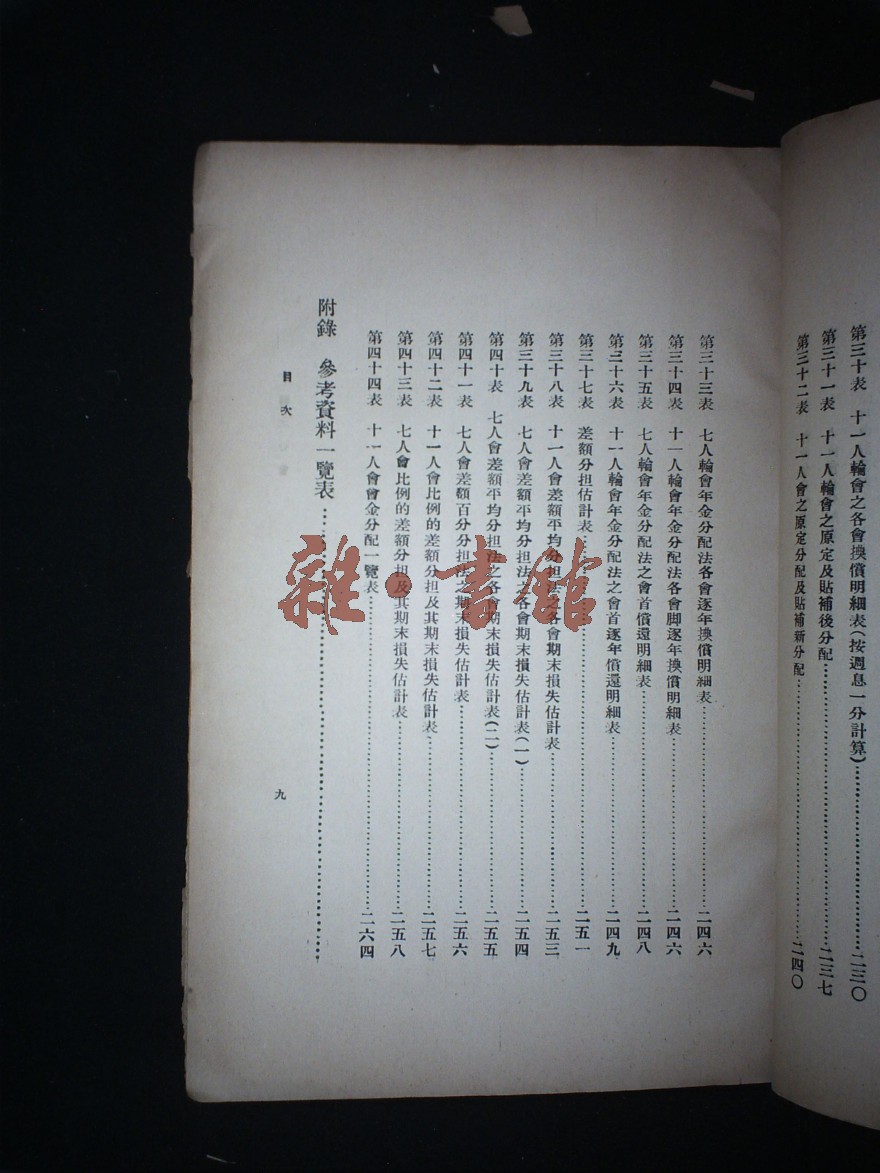 第三十表　十一人輪會之各會換償明細表(按週息一分計算)……二三〇
第三十一表　十一人輪會之原定及貼補後分配……二三七
第三十二表　十一人會之原定分配及貼補新分配……二四〇
第三十三表　七人輪會年金分配法各會逐年換償明細表……二四六
第三十四表　十一人輪會年金分配法各會脚逐年換償明細表……二四六
第三十五表　七人輪會年金分配法之會首償還明細表……二四八
第三十六表　十一人輪會年金分配法之會首逐年償還明細表……二四九
第三十七表　差額分担估計表……二五一
第三十八表　十一人會差額平均分担法之各會期末損失估計表……二五三
第三十九表　七人會差額平均分担法之各會期末損失估計表(一)……二五四
第四十表　七人會差額平均分担法之各會期末損失估計表(二)……二五五
第四十一表　七人會差額百分分担法之期末損失估計表……二五六
第四十二表　十一人會比例的差額分担及其期末損失估計表……二五七
第四十三表　七人會比例的差額分担及其期末損失估計表……二五八
第四十四表　十一人會會金分配一覽表……二六四
附錄　參考資料一覽表……
目次
九
雜·書館